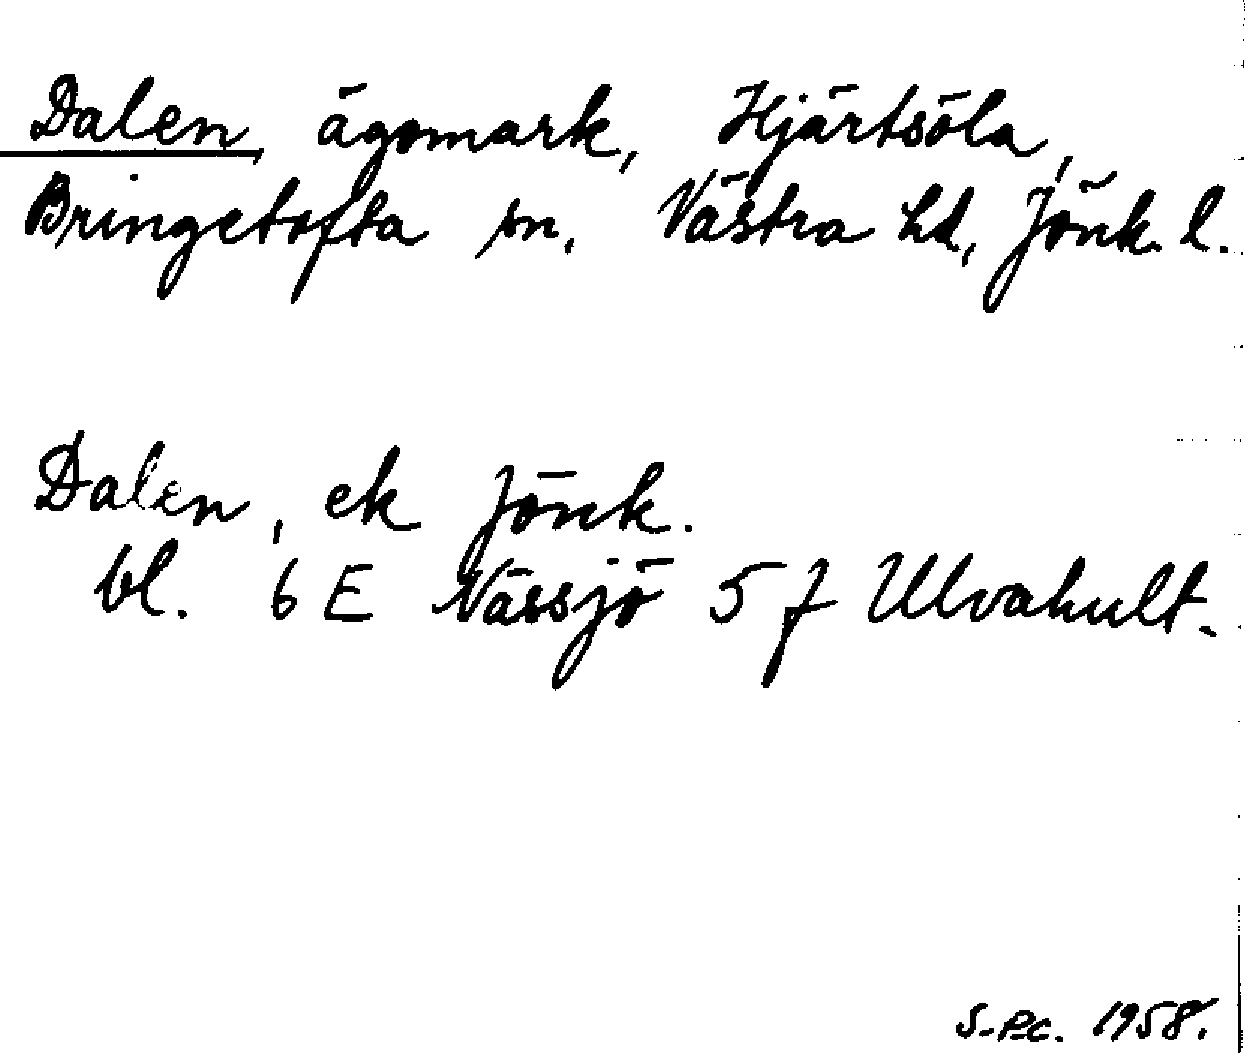 Dalen, ägomark, Hjärtsöla,
Bringetofta sn, Västra hd, Jönk. l.
Dalen, ek Jönk.
bl. 6 E Nässjö 5 f Ulvahult.
S-P.c. 1958.